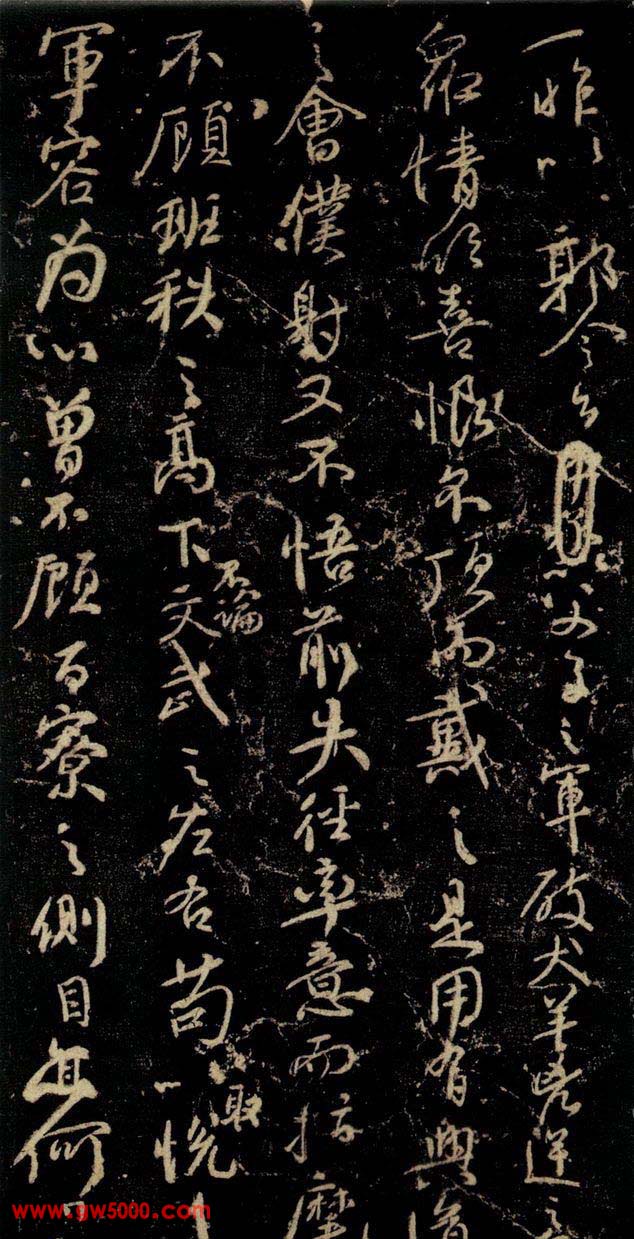 一昨以 郭令公以父子之軍破犬羊兇逆之
眾情欣喜恨不頂而戴之是用有興道
之會僕射又不悟前失徑率意而指麾
不顧班秩之高下不論文武之左右苟以取悅
軍容為心曾不顧百寮之側目亦何
www.gw5000.com